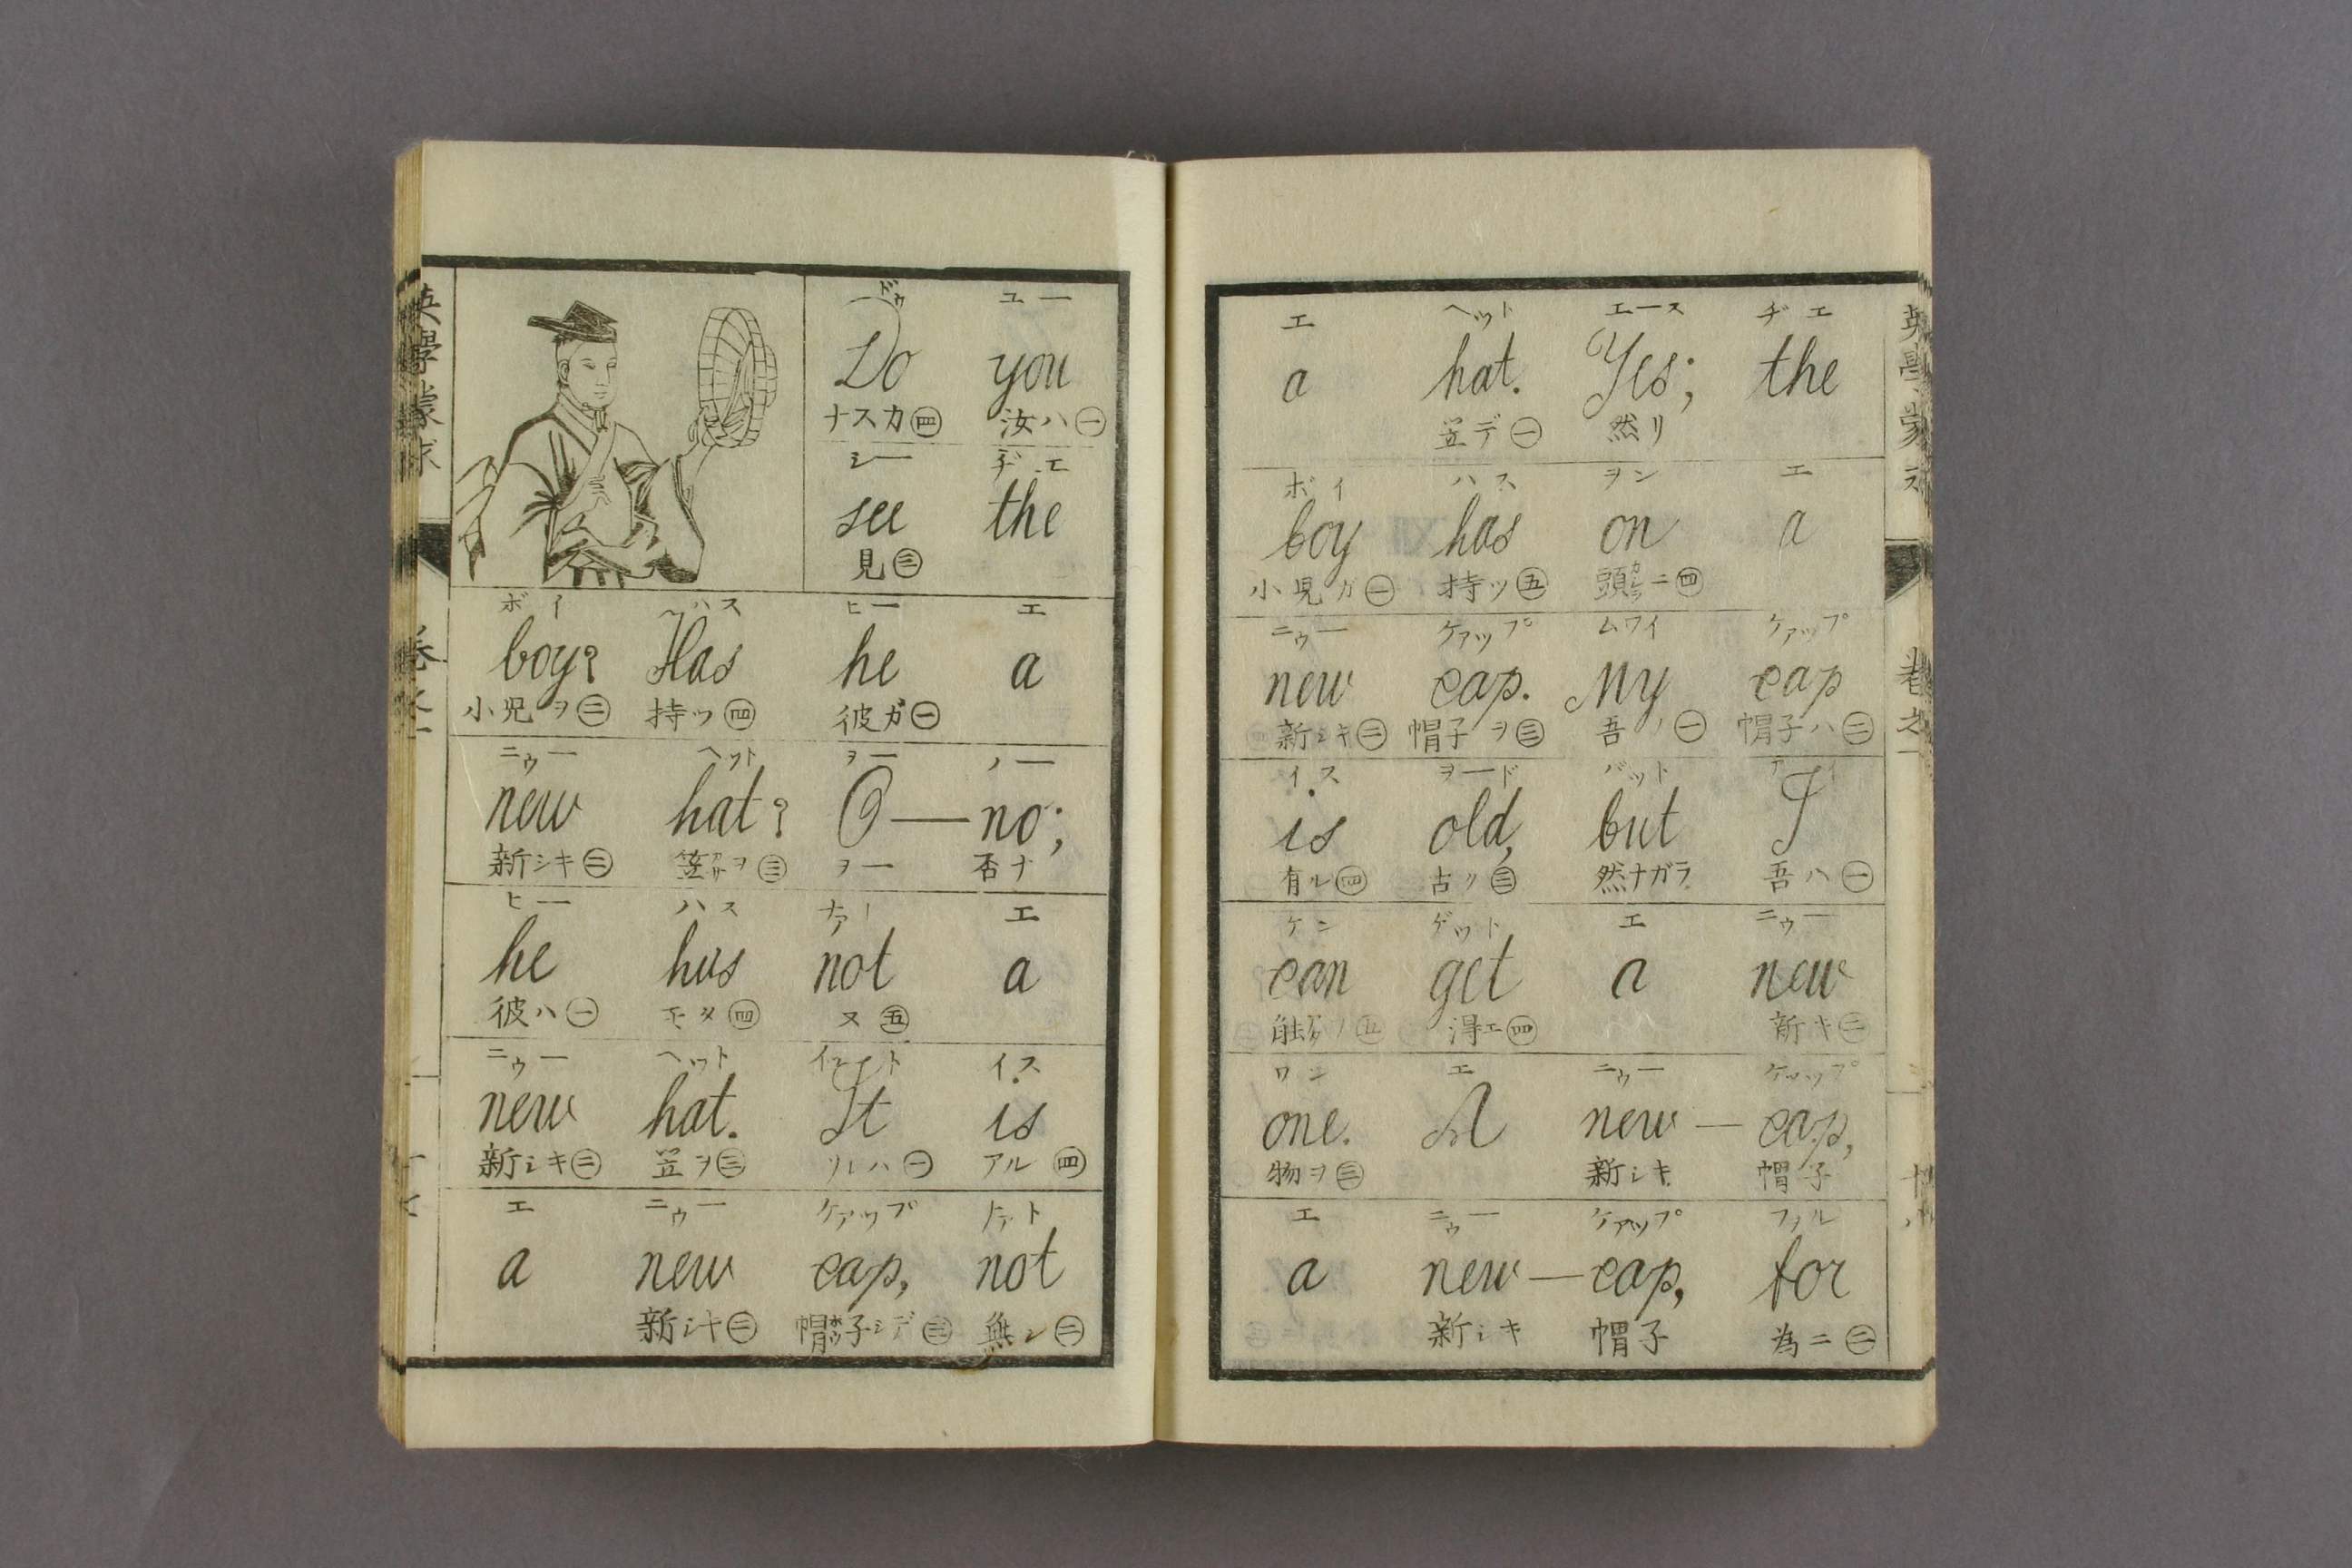 英學蒙求
卷之一
ドゥ ユー
Do you
ナスカ㊃ 汝ハ㊀
シー ヂエ
see the
見㊂
ボイ ハス ヒー エ
boy? Has he a
小児ヲ㊁ 持ツ㊃ 彼ガ㊀
ニゥー ヘット ヲー ノー
new hat? O—no;
新シキ㊁ 笠ヲ㊂ ヲー 否ナ
ヒー ハス エ
he has not a
彼ハ㊀ モタ㊃ ヌ㊄
ニゥー ヘット イス
new hat. It is
新シキ㊁ 笠ヲ㊂ ソレハ㊀ アル㊃
エ ニゥー ケアップ
a new cap, not
新シキ㊁ 帽子シデ㊂ 無シ㊁
エ ヘット エース ヂエ
a hat. Yes; the
笠デ㊀ 然リ
ボイ ハス ヲン エ
boy has on a
小児ガ㊀ 持ツ㊄ 頭ニ㊃
ニゥー ケアップ ムワイ ケアップ
new cap. My cap
新シキ㊁ 帽子ヲ㊂ 吾ノ㊀ 帽子ハ㊁
イス ヲード バット アイ
is old, but I
有ル㊃ 古ク㊂ 然ナガラ 吾ハ㊀
ケン ゲット エ ニゥー
can get a new
能 得エ㊃ 新キ㊁
ワン エ ニゥー ケアップ
one. A new—cap,
物ヲ㊂ 新シキ 帽子
エ ニゥー ケアップ フヲル
a new—cap, for
新シキ 帽子 為ニ㊁
卷之一
十八